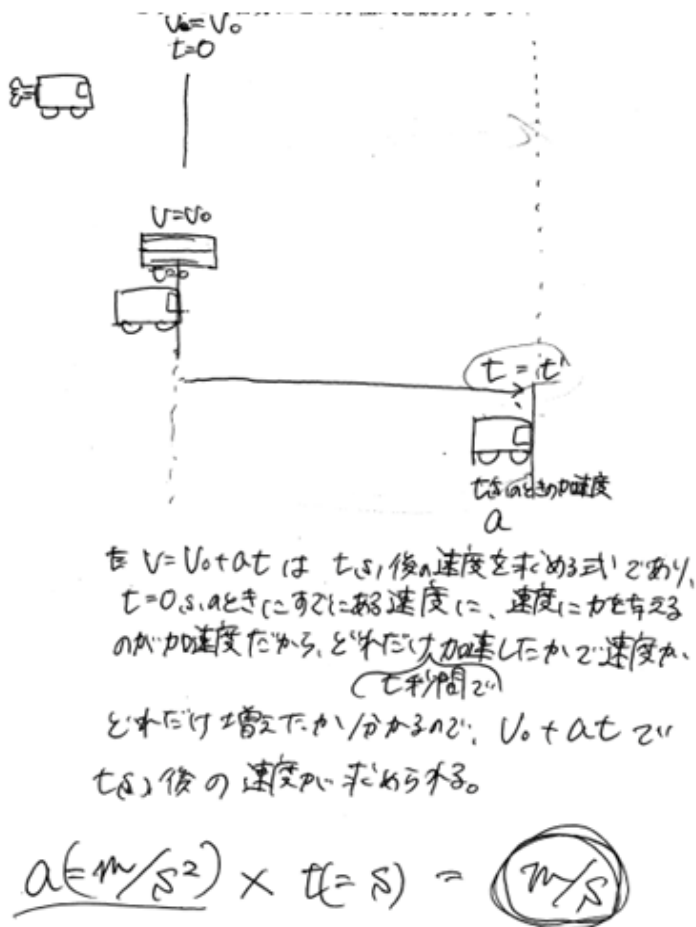 V=V₀
t=0
V=V₀
t=0
t=t'
t(s)のときの加速度
a
V=V₀+at は t(s)後の速度を求める式であり、
t=0(s)のときにすでにある速度に、速度に力を与える
のが加速度だから、どれだけ加速したかで速度が、
t秒間で
どれだけ増えたか分かるので、V₀+atで
t(s)後の速度が求められる。
a(=m/s²) × t(=s) = m/s